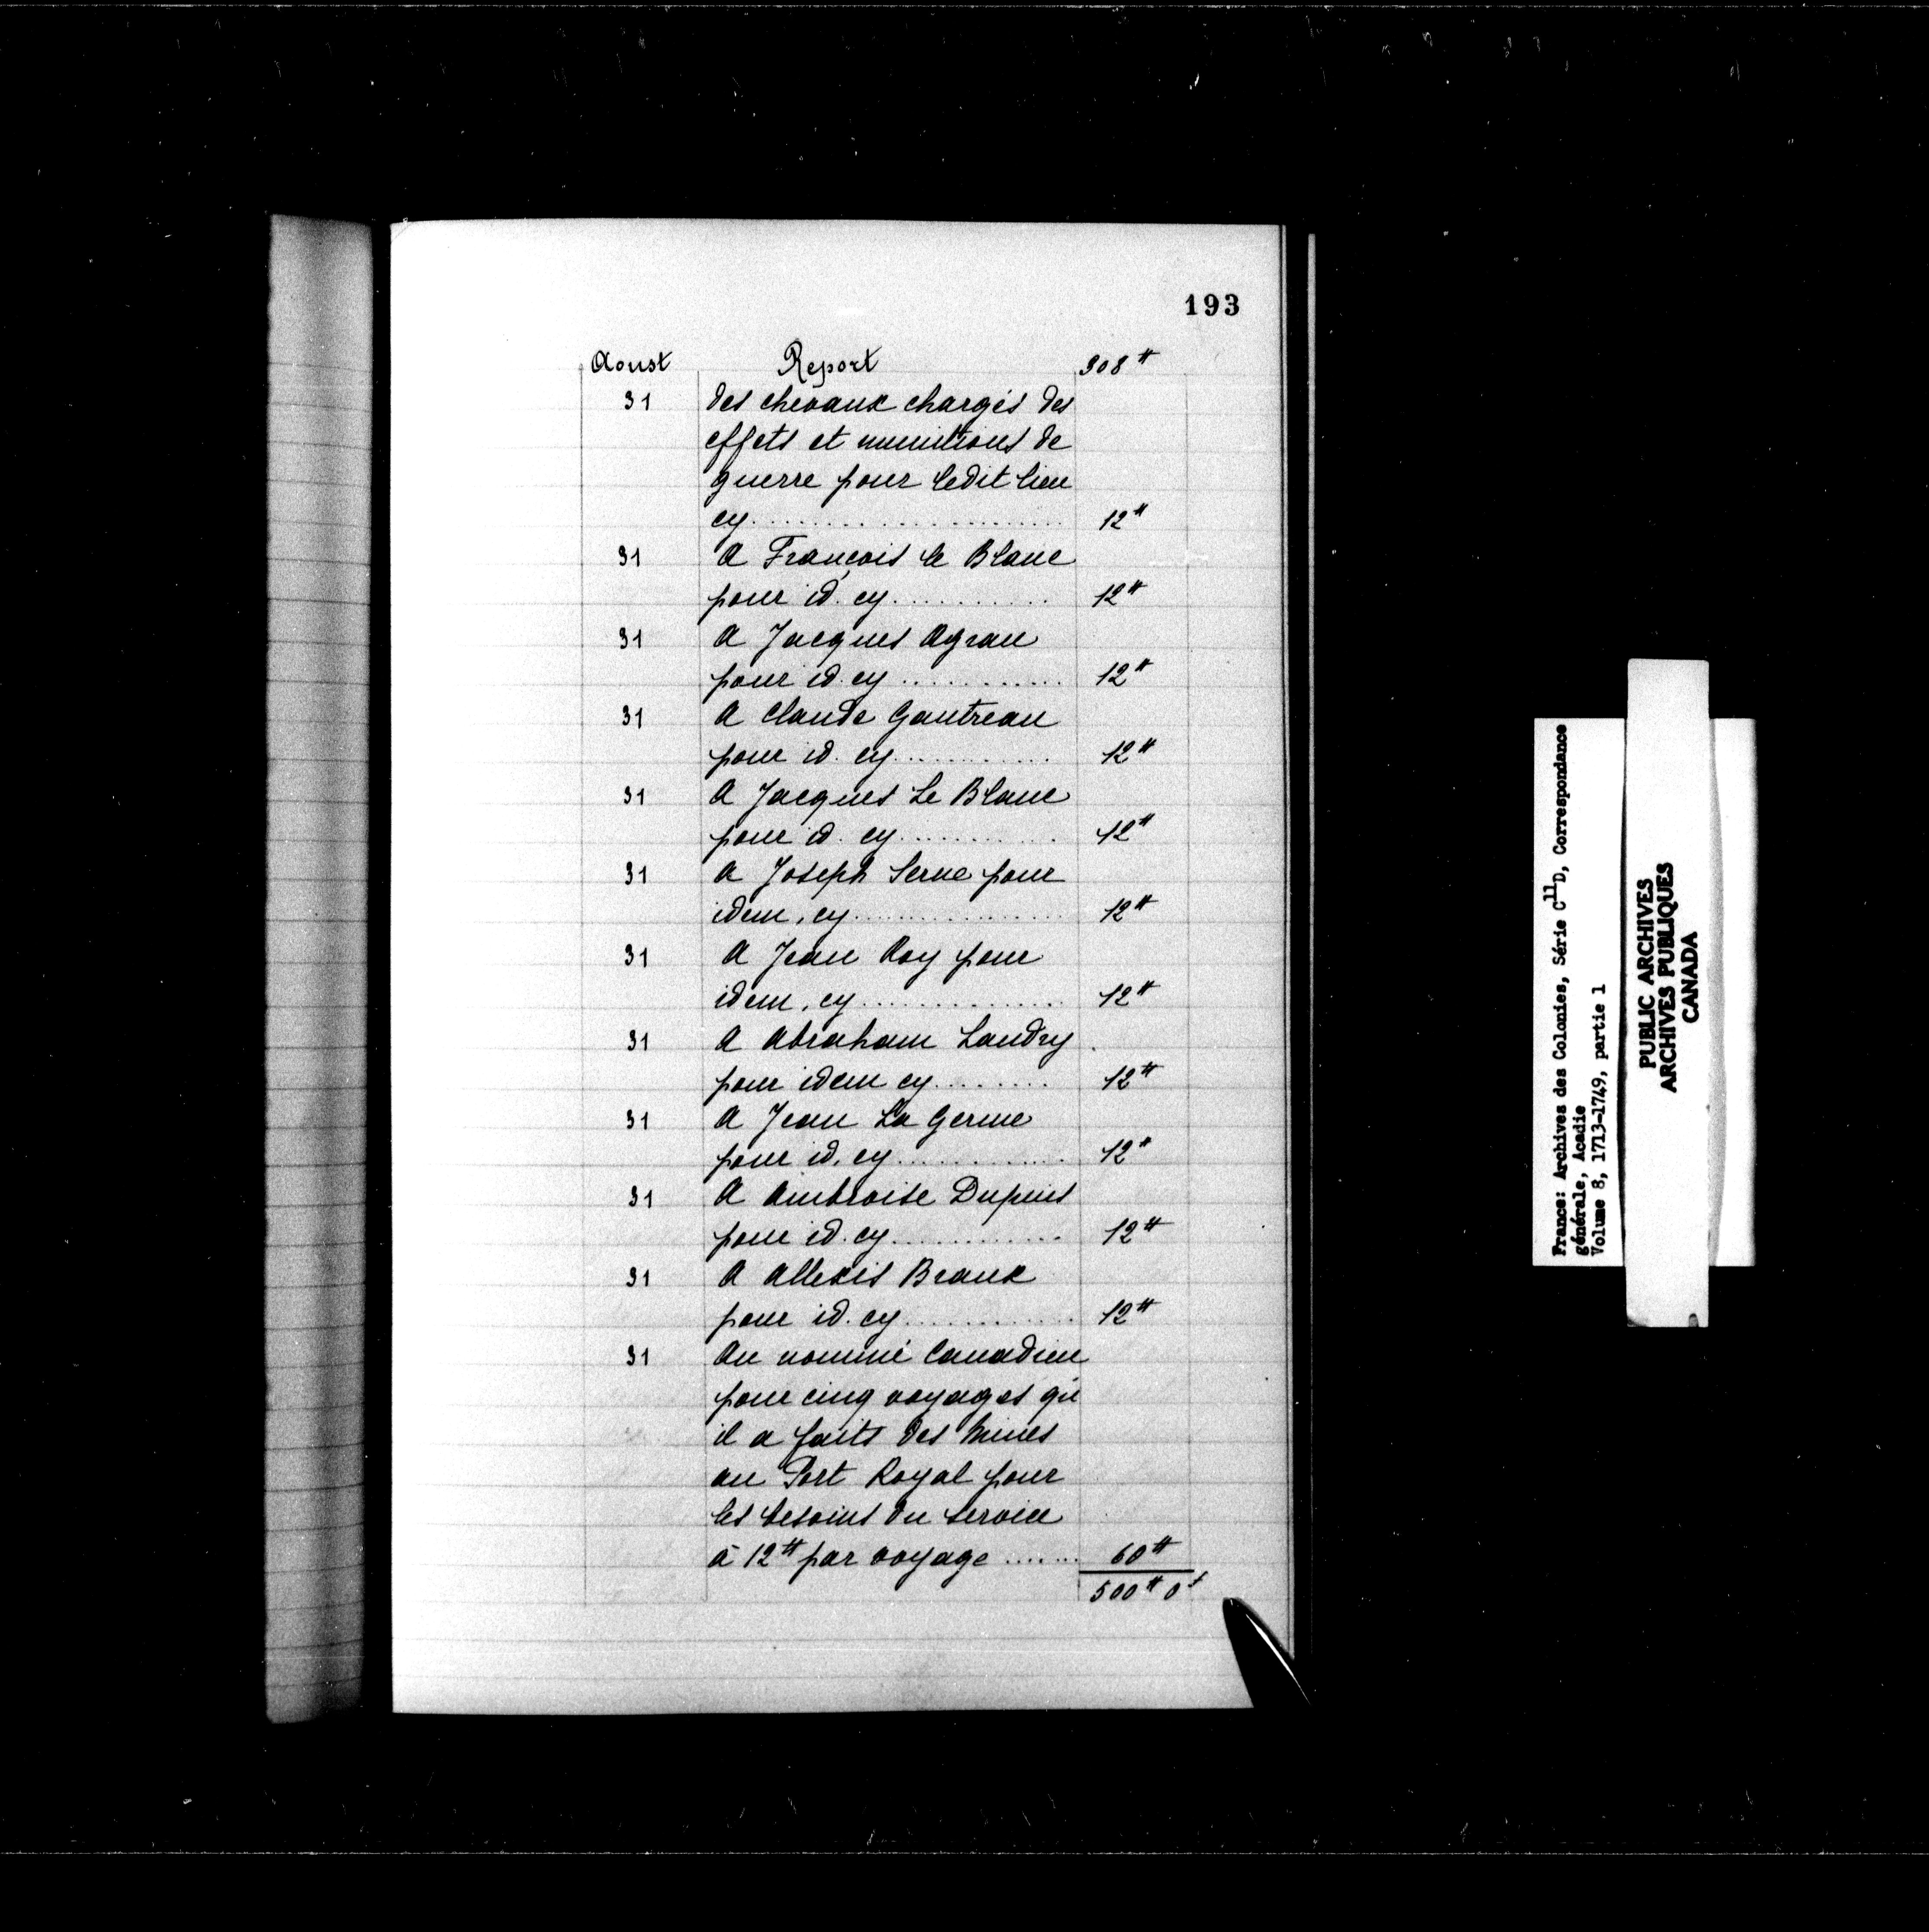 193
Aoust Report 308 ₶
31 des chevaux chargés des
effets et munitions de
guerre pour ledit lieu
cy...................... 12 ₶
31 A François le Blanc
pour id. cy........... 12 ₶
31 A Jacques Agran
pour id. cy............ 12 ₶
31 A Claude Gautreau
pour id. cy............ 12 ₶
31 A Jacques Le Blanc
pour id. cy............ 12 ₶
31 A Joseph Serne pour
idem, cy................ 12 ₶
31 A Jean Roy pour
idem, cy............... 12 ₶
31 A Abraham Landry
pour idem cy........ 12 ₶
31 A Jean La Gerne
pour id. cy............. 12 ₶
31 A Ambroise Dupuis
pour id. cy............. 12 ₶
31 A Allexis Braux
pour id. cy............. 12 ₶
31 Au nommé Canadien
pour cinq voyages qu
il a faits des Mines
au Port Royal pour
les besoins du service
à 12 ₶ par voyage ....... 60 ₶
500 ₶ 0 s
France: Archives des Colonies, Série C11D, Correspondance
générale, Acadie
Volume 8, 1713-1749, partie 1
PUBLIC ARCHIVES
ARCHIVES PUBLIQUES
CANADA